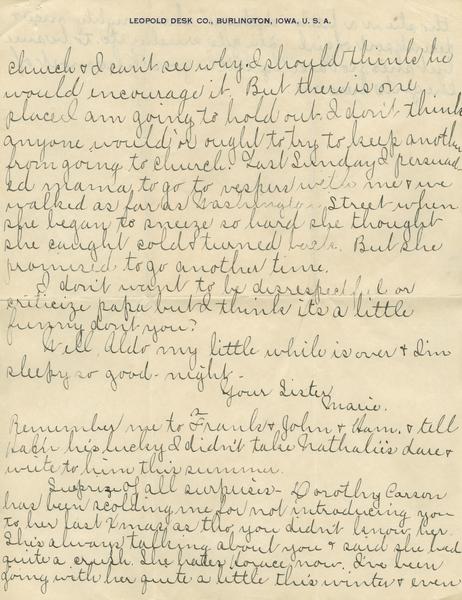 LEOPOLD DESK CO., BURLINGTON, IOWA, U. S. A.
church & I can't see why. I should think he
would encourage it. But there is one
place I am going to hold out. I don't think
anyone would or ought to try to keep another
from going to church. Last Sunday I persuad
ed mama to go to vespers with me & we
walked as far as Washington Street when
she began to sneeze so hard she thought
she caught cold & turned back. But she
promised to go another time.
I don't want to be disrespectful or
criticize papa but I think it's a little
funny don't you?
Well, Aldo my little while is over & I'm
sleepy so good-night-
Your Sister
Marie.
Remember me to Frank & John & Ham. & tell
he's lucky I didn't take Nathalie's dare &
write to him this summer.
Suprize of all surpises - Dorothy Carson
has been scolding me for not introducing you
to her last Xmas as tho you didn't know her.
She's always talking about you & said she had
quite a crush. She hates Horace now. I've been
going with her quite a little this winter & even